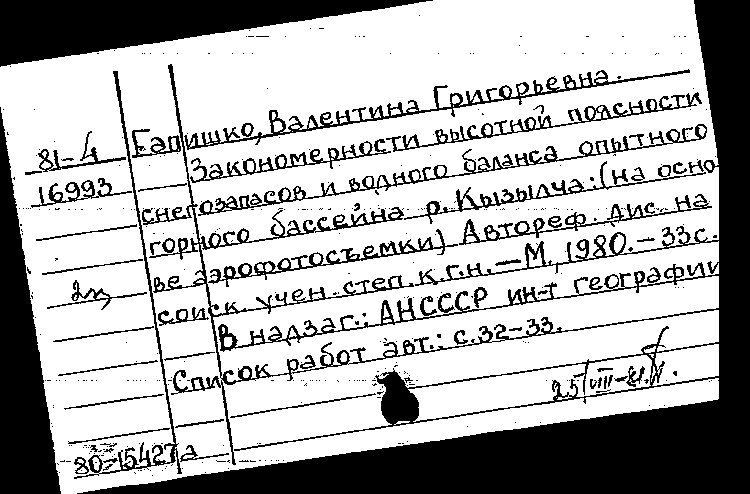 Гапишко, Валентина Григорьевна.
81-4 Закономерности высотной поясности
16993 снегозапасов и водного баланса опытного
горного бассейна р. Кызылча: (на осно
ве аэрофотосъемки) Автореф. дис. на
2 соиск. учен. степ. к.г.н. — М., 1980. — 33с.
В надзаг.: АНСССР ин-т географии
Список работ авт.: с.32-33.
25/VIII-81.
80-15427а